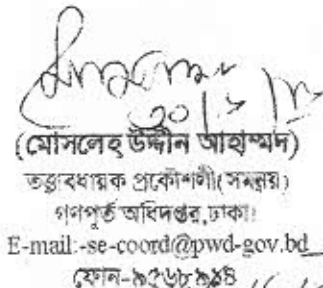 (মোসলেহ উদ্দীন আহাম্মদ)
তত্ত্বাবধায়ক প্রকৌশলী(সমন্বয়)
গণপূর্ত অধিদপ্তর,ঢাকা।
E-mail:-se-coord@pwd-gov.bd
ফোন-৯৫৬৮৯৯৪